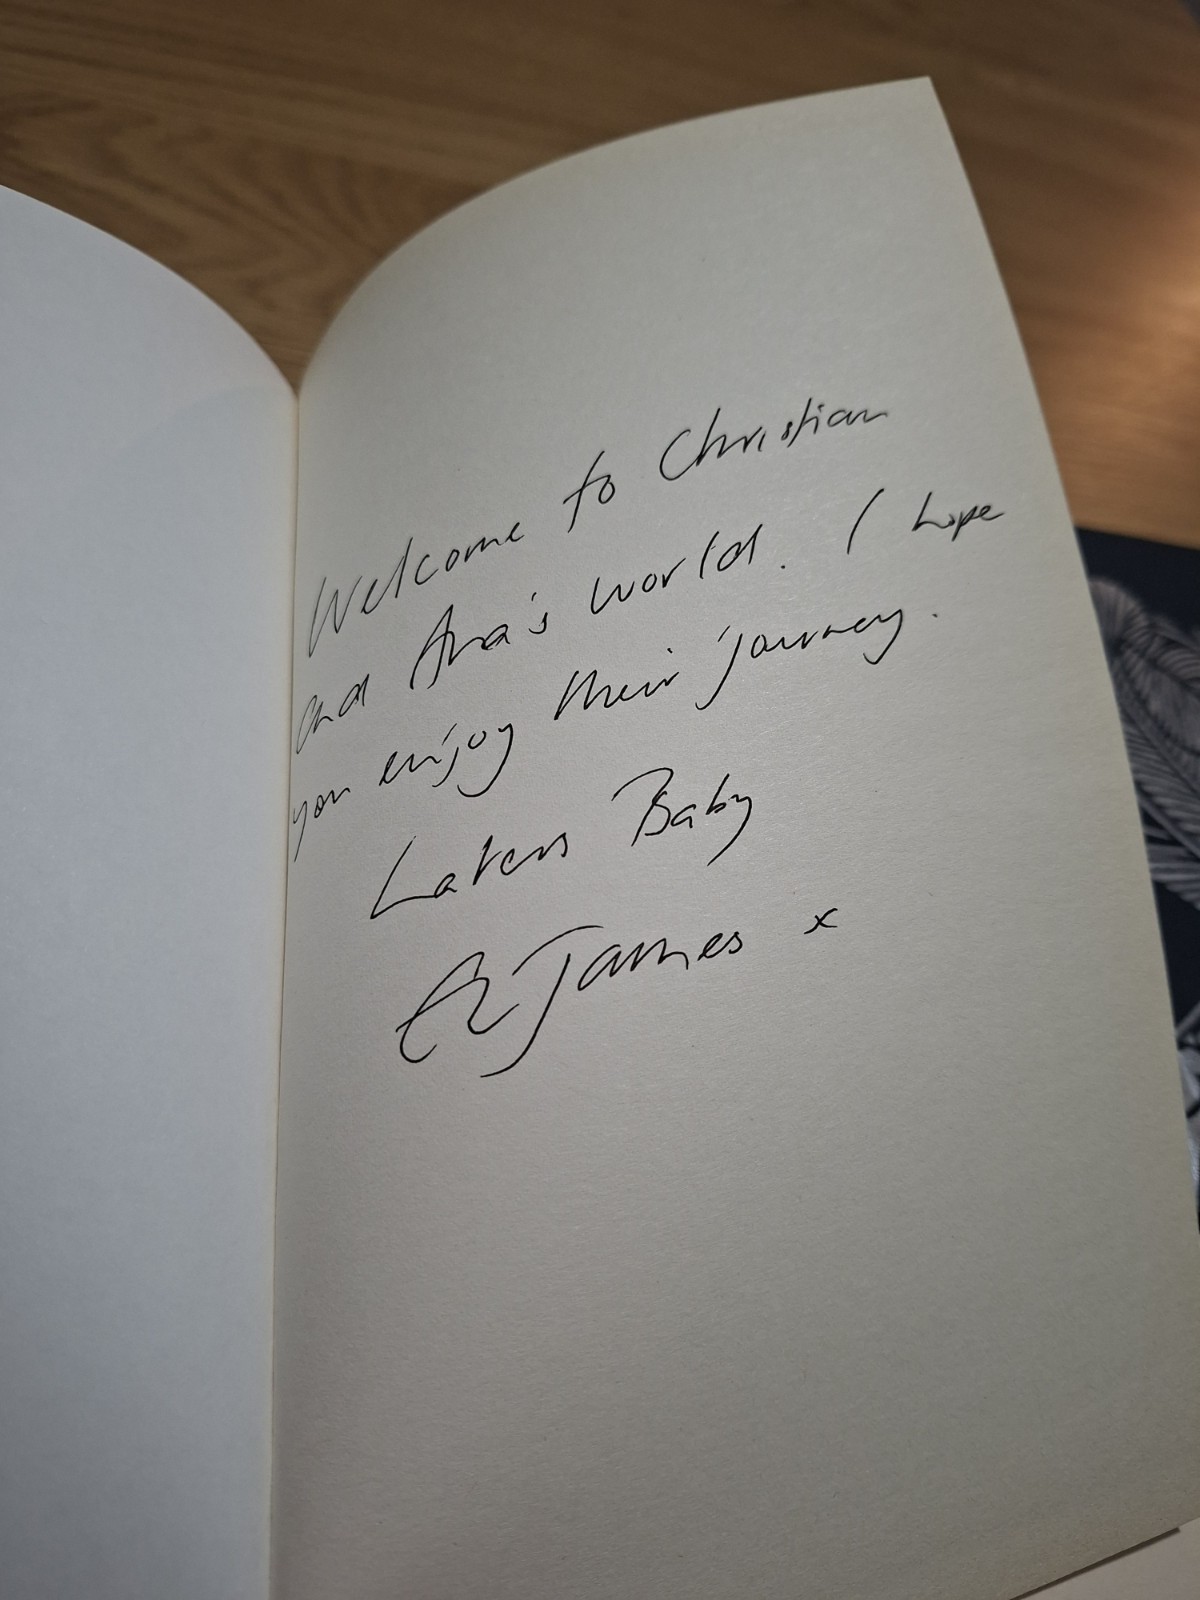 Welcome to Christian
and Ana's world. I hope
you enjoy their journey.
Laters Baby
EL James x